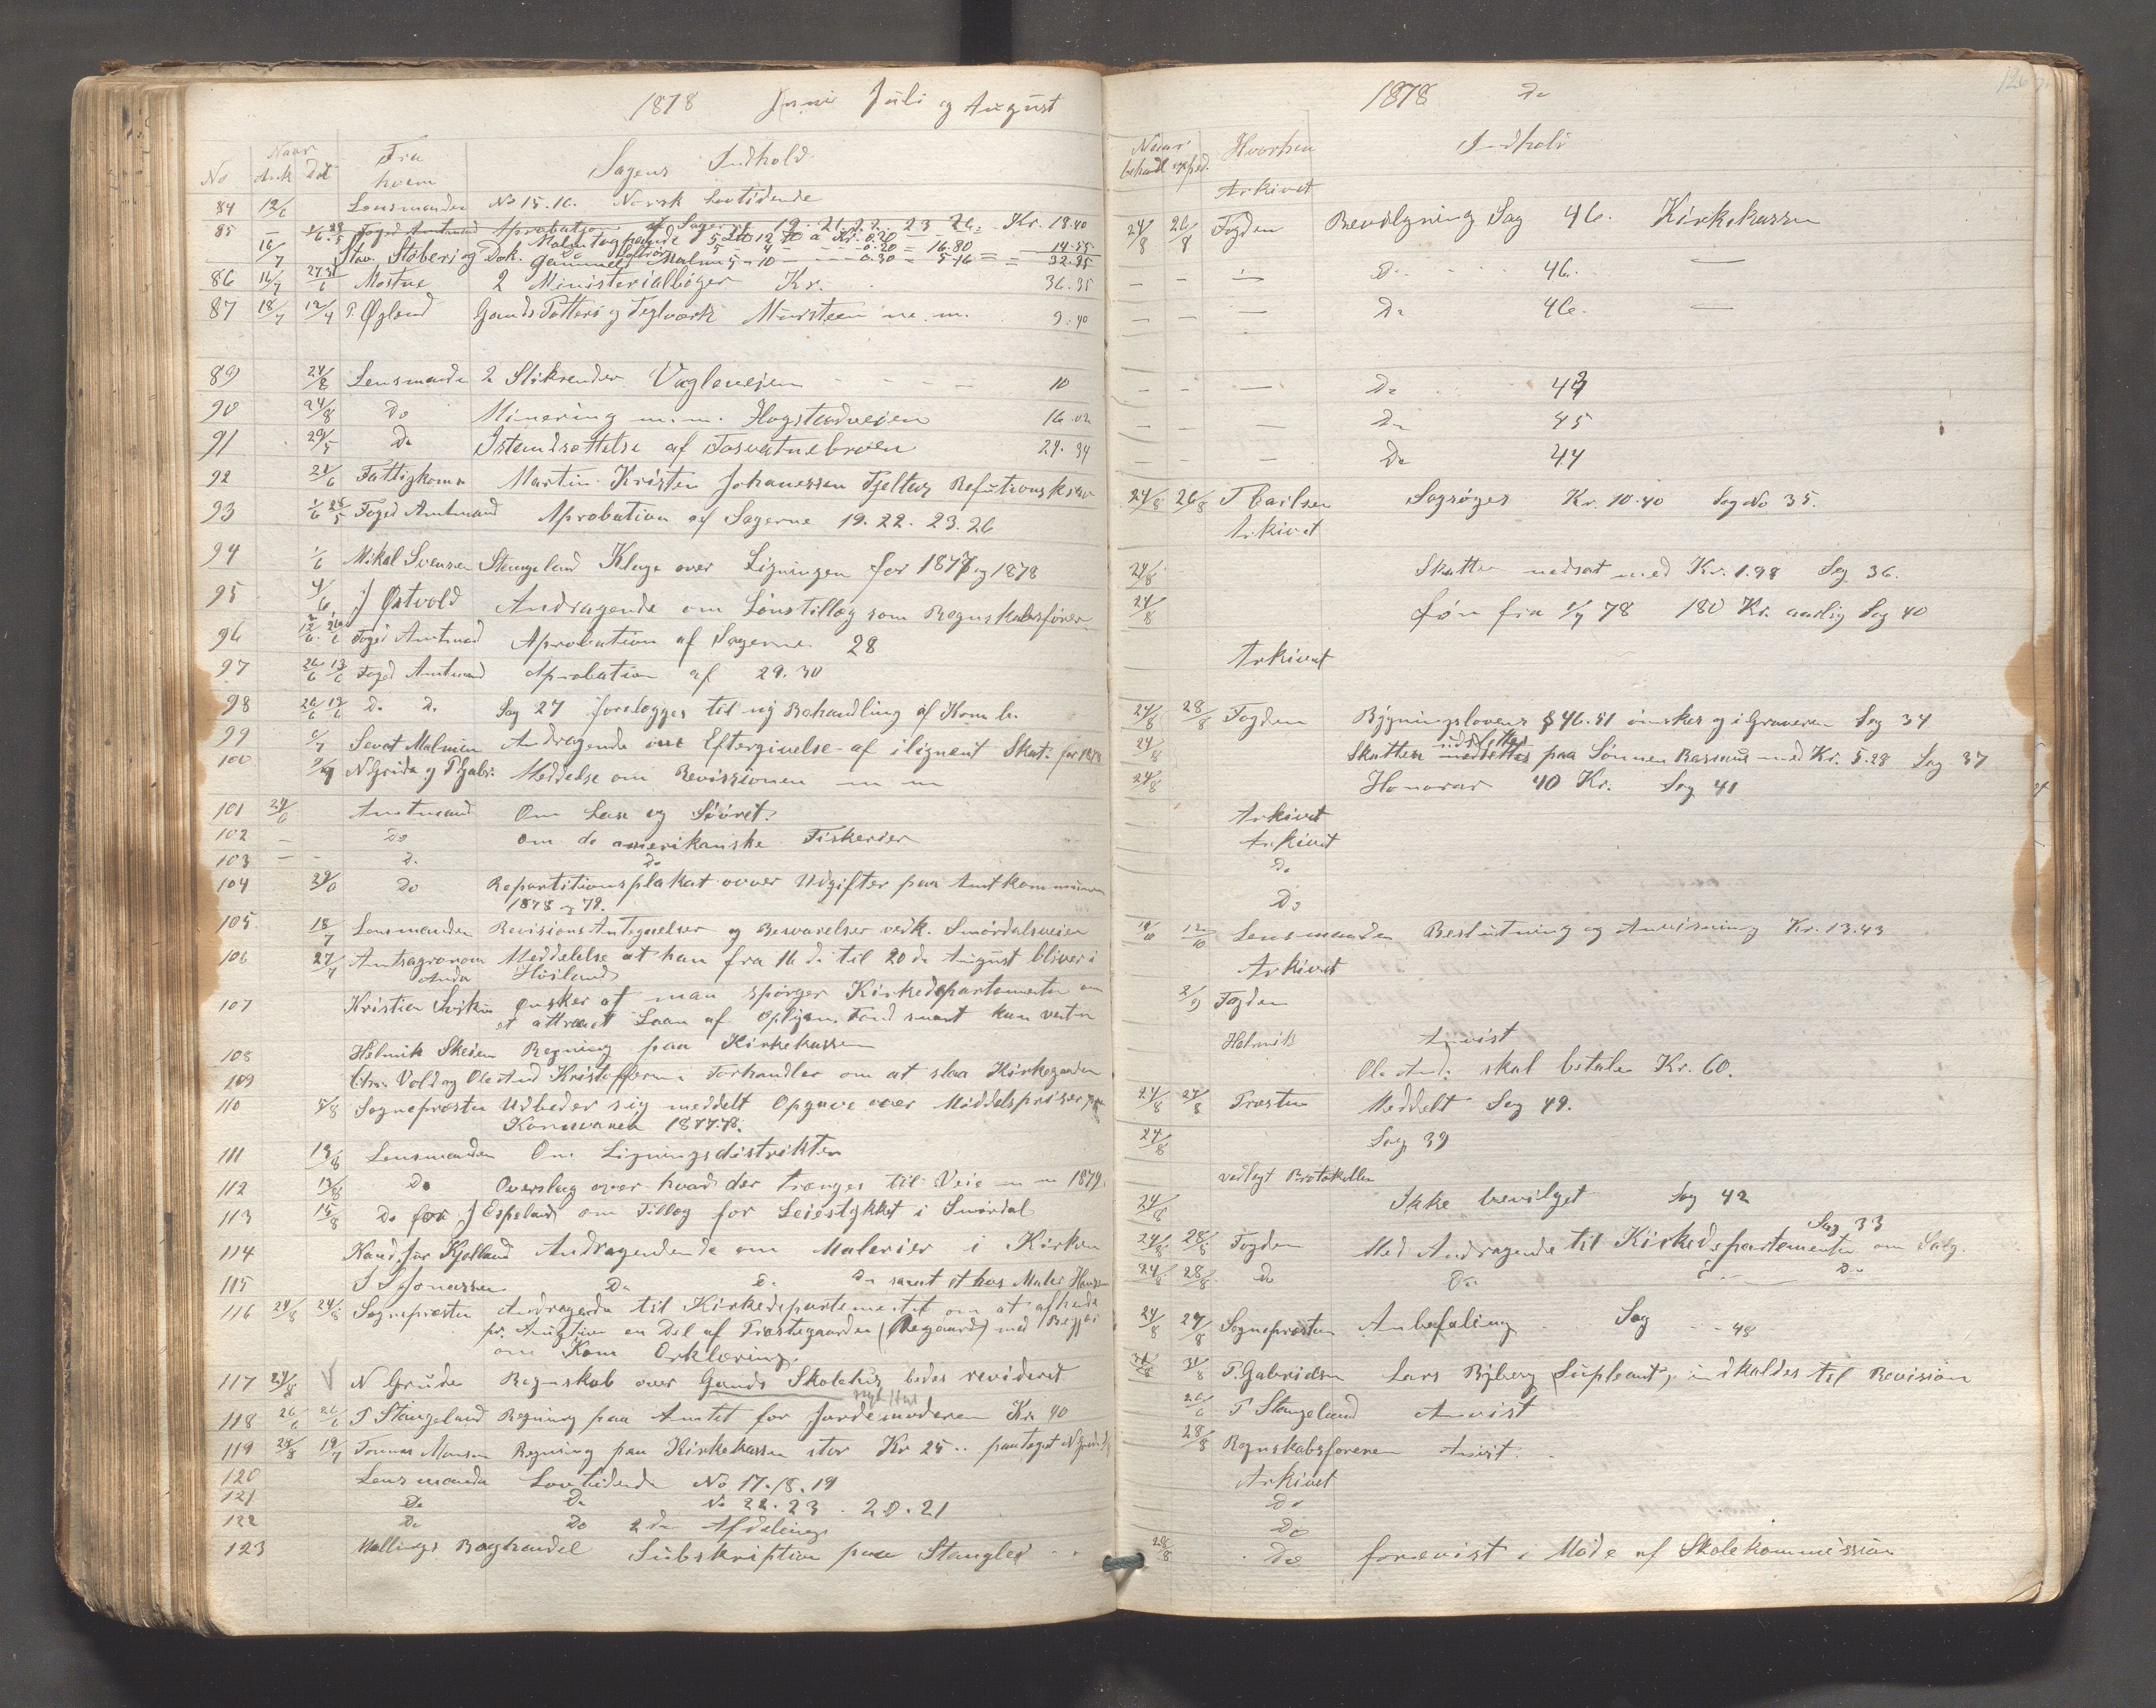 1878 Juni Juli og August
No Naar Fra Sagens Indhold
ank Dat hvem
84 12/6 Lensmanden No 15.16. Norsk Lovtidende
85 Foged Amtmand Aprobation af Sagerne 19. 21. 22. 23 26 Kr. 18.40
16/7 Stav. Støberi og Dok. 14.55
Gammelt Malm 5 - 10 0.30 = 5.16 = 32.95
86 16/7 Mostue 2 Ministerialbøger Kr. 36.35
87 18/7 12/7 T. Øgland Gands Potteri og Teglværk Mursteen m. m. 9.40
89 24/8 Lensmanden 2 Stikrender Vagleveien 10
90 24/8 Do Minering m. m. Hogstadveien 16.02
91 29/5 Do Istandsættelse af Fosvatnebroen 24.34
92 21/6 Fattigkom. Martin Kristen Johanessen Tjeltus Refutionskrav
93 1/6 28/5 Foged Amtmand Aprobation af Sagerne 19. 22. 23. 26
94 1/6 Mikal Svensen Stangeland Klage over Ligningen for 1877 og 1878
95 4/6 J Østvold Andragende om Lønstillæg som Regnskabsfører
96 Foged Amtmand Aprobation af Sagerne 28
97 26/6 13/6 Foged Amtmand Aprobation af 29. 30
98 26/6 19/6 D. D. Sag 27 forelægges til ny Behandling af Kom b.
99 6/7 Sevat Malmin Andragende om Eftergivelse af ilignent Skat for 1878
100 9/7 N Grude og T Gabr. Meddelse om Revissionen m m
101 24/6 Amtmand Om Lease og Søøret.
102 — Do om de amerikanske Fiskerier
103 — D. Do
104 29/6 Do Repartitionsplakat over Udgifter paa Amtkommunen
1878 og 79.
105 18/7 Lensmanden Revisions Antegnelser og Besvarelser vedk. Smørdalsveien
106 27/7 Amtsagronom Meddelelse at han fra 16 de til 20 de August bliver i
Høiland
107 Kristian ønsker at man spørger Kirkedepartementet om
et attraaet Laan af Oplysn. Fond snart kan ventes
108 Helmik Skeien Regning paa Kirkekassen
109 Chr. Vold og Ole And Kristoffersen Forhandler om at slaa Kirkegaarden
110 5/8 Sognepræsten Udbeder sig meddelt Opgave over Middelspriser paa
Kornvarer 1877.78.
111 13/8 Lensmanden Om Ligningsdistrikter
112 13/8 Do Overslag over hvad der trænges til Veie m m 1879.
113 15/8 Do for J Espeland om Tillæg for Leiestykket i Smørdal
114 Kand. jur Kjelland Andragendende om Malerier i Kirken
115 S S Jonassen Do D. Do samt et hos Maler Hansen
116 24/8 24/8 Sognepræsten Andragende til Kirkedepartementet om at afhende
pr. Auktion en Del af Præstegaarden (Øksgaard) med Begjær
om Kom Erklæring.
117 24/8 V N Grude Regnskab over Gands Skolehus bedes revideret
118 26/6 26/6 T Stangeland Regning paa Amtet for Jordemoderen Kr 40
119 24/8 19/7 Tonnes Monsen Regning paa Kirkekassen stor Kr 25 .. paategnet N Grude
120 Lensmanden Lovtidende No 17. 18. 19
121 Do Do No 22. 23. 20. 21
122 Do Do 2 den Afdeling
123 Mallings Boghandel Subskription paa Stangles
1878 Do
Naar Hvorhen Indhold
behandl exped.
Arkivet
24/8 26/8 Fogden Bevilgning Sag 46. Kirkekassen
— — — D. 46. —
— — — Do 46. —
— — — Do 43
— — — Do 45
— — — Do 44
24/8 26/8 T Carlsen Sagsøges Kr. 10.40 Sag No 35.
Arkivet
24/8 Skatten nedsat med Kr. 1.98 Sag 36.
24/8 Løn fra 1/7 78 180 Kr. aarlig Sag 40
Arkivet
24/8 28/8 Fogden Bygningslovens § 46.51 ønskes og i Graveren Sag 34
24/8 Skatten udslettes paa Sønnen Rasmus med Kr. 5.28 Sag 37
24/8 Honorar 40 Kr. Sag 41
Arkivet
Arkivet
Do
Do
12/10 Lensmanden Beslutning og Anvisning Kr. 13.43
Arkivet
2/9 Fogden
Helmik Anvist
Ole And. skal betale Kr. 60.
24/8 27/8 Præsten Meddelt Sag 49.
24/8 Sag 39
vedlagt Protokollen
24/8 Ikke bevilget Sag 42
Sag 33
24/8 28/8 Fogden Med Andragende til Kirkedepartementet om Salg.
24/8 28/8 Do Do Do
24/8 27/8 Sognepræsten Anbefaling Sag 48
31/8 31/8 T. Gabrielsen Lars Byberg (Supleant) indkaldes til Revision
26/6 T Stangeland Anvist
28/8 Regnskabsføreren Anvist.
Arkivet
Do
Do
28/8 Do forevist i Møde af Skolekommission